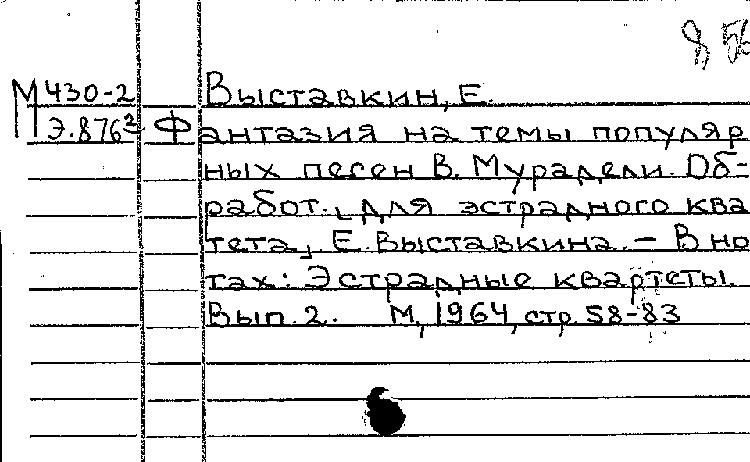 М430-2 Выставкин, Е.
Э.876² Фантазия на темы популяр
ных песен В. Мурадели. Об-
работ. [для эстрадного ква
тета] Е. Выставкина. – В но
тах: Эстрадные квартеты.
Вып. 2. М, 1964, стр. 58-83